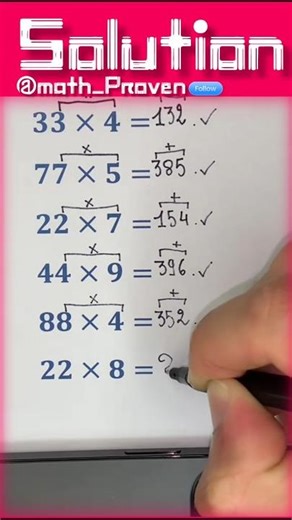 Solution
@math_Proven Follow
33 × 4 = 132 . ✓
× +
77 × 5 = 385 . ✓
× +
22 × 7 = 154 . ✓
× +
44 × 9 = 396 . ✓
× +
88 × 4 = 352 .
22 × 8 = ?